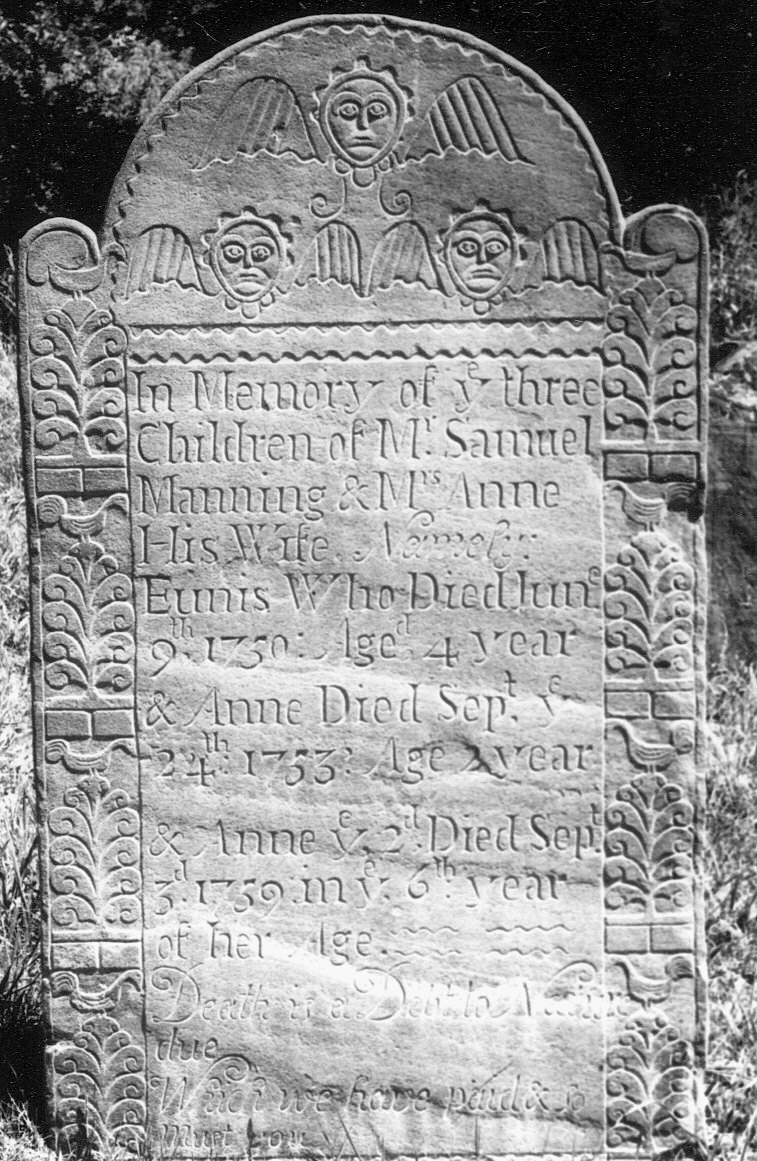 In Memory of yᵉ three
Children of Mʳ. Samuel
Manning & Mʳˢ. Anne
His Wife. Namely:
Eunis Who Died Junᵉ
9ᵗʰ. 1750: Agedᵈ 4 year
& Anne Died Sepᵗ. yᵉ
24ᵗʰ: 1753: Age 2 year
& Anne yᵉ. 2ᵈ. Died Sepᵗ.
3ᵈ. 1759: in yᵉ. 6ᵗʰ. year
of her Age.
Death is a Debt to Nature
due
Which we have paid & so
Must you